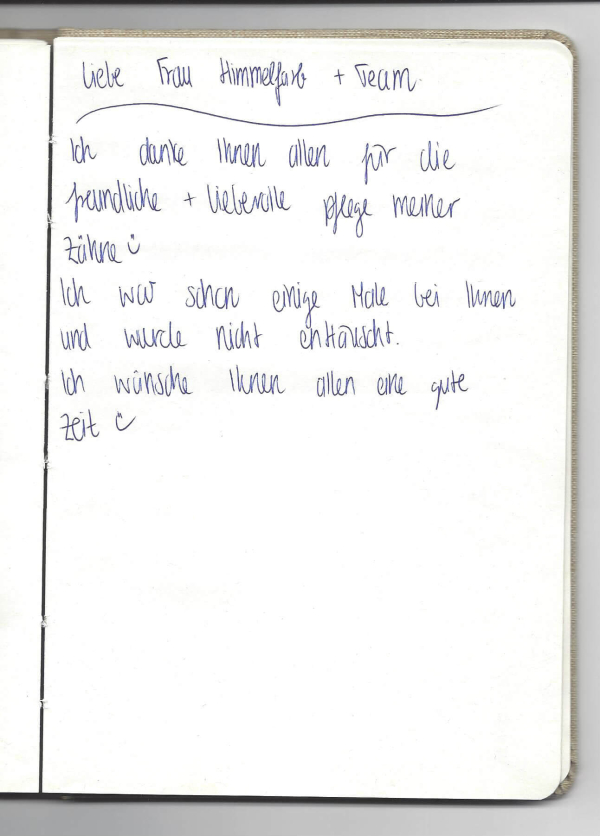 Liebe Frau Himmelfarb + Team.
Ich danke Ihnen allen für die
freundliche + liebevolle pflege meiner
Zähne ü
Ich war schon einige Male bei Ihnen
und wurde nicht enttäuscht.
Ich wünsche Ihnen allen eine gute
Zeit ü